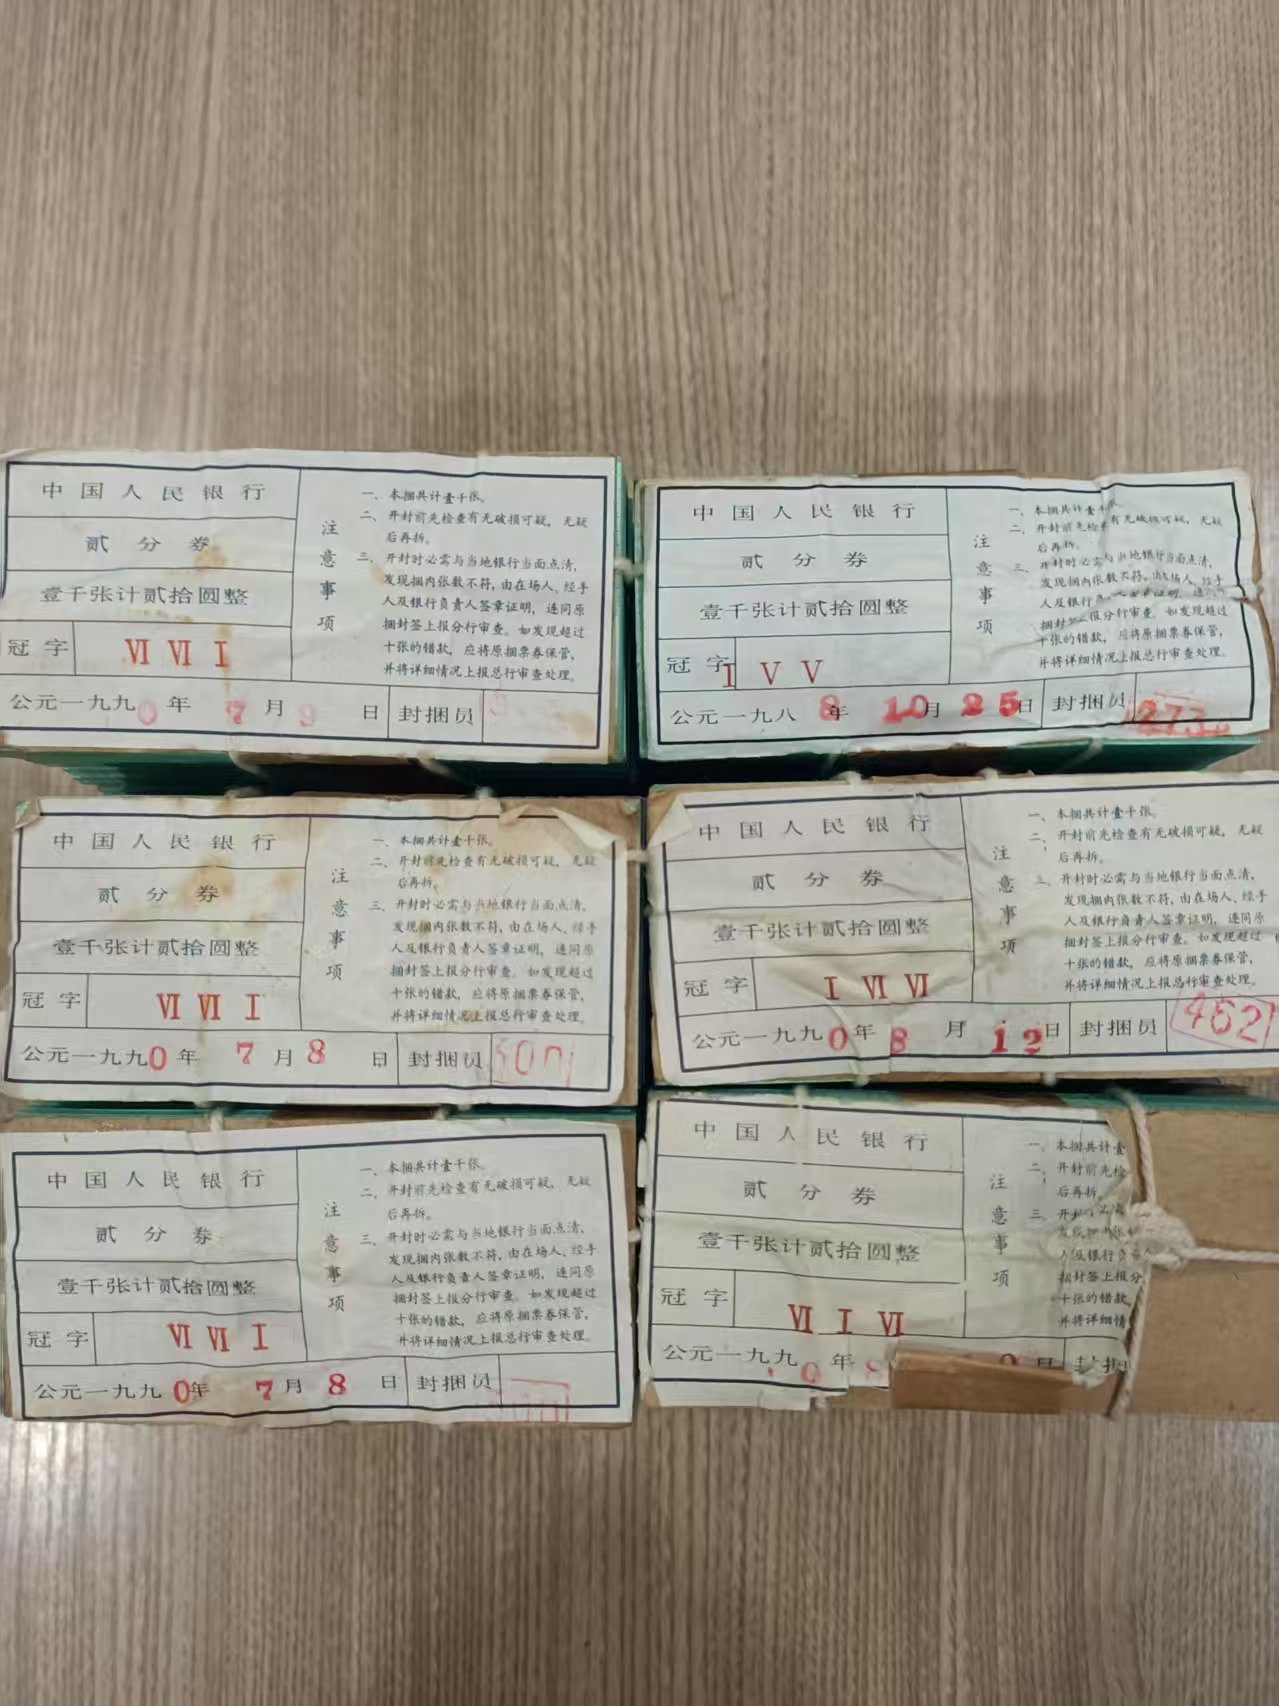 中国人民银行
贰分券
壹千张计贰拾圆整
冠字 VI VI I
公元一九九0年 7月 9日 封捆员
注意事项
一、本捆共计壹千张。
二、开封前先检查有无破损可疑，无疑
后再拆。
三、开封时必需与当地银行当面点清，
发现捆内张数不符，由在场人、经手
人及银行负责人签章证明，连同原
捆封签上报分行审查。如发现超过
十张的错款，应将原捆票券保管，
并将详细情况上报总行审查处理。
中国人民银行
贰分券
壹千张计贰拾圆整
冠字 I V V
公元一九八8年 10月 25日 封捆员 273
注意事项
一、本捆共计壹千张。
二、开封前先检查有无破损可疑，无疑
后再拆。
三、开封时必需与当地银行当面点清，
发现捆内张数不符，由在场人、经手
人及银行 证明，连
捆封签上报分行审查。如发现超过
十张的错款，应将原捆票券保管，
并将详细情况上报总行审查处理。
中国人民银行
贰分券
壹千张计贰拾圆整
冠字 VI VI I
公元一九九0年 7月 8日 封捆员
注意事项
一、本捆共计壹千张。
二、开封前先检查有无破损可疑，无疑
后再拆。
三、开封时必需与当地银行当面点清，
发现捆内张数不符，由在场人、经手
人及银行负责人签章证明，连同原
捆封签上报分行审查。如发现超过
十张的错款，应将原捆票券保管，
并将详细情况上报总行审查处理。
中国人民银行
贰分券
壹千张计贰拾圆整
冠字 I VI VI
公元一九九0年 8月 12日 封捆员 462
注意事项
一、本捆共计壹千张。
二、开封前先检查有无破损可疑，无疑
后再拆。
三、开封时必需与当地银行当面点清，
发现捆内张数不符，由在场人、经手
人及银行负责人签章证明，连同原
捆封签上报分行审查。如发现超过
十张的错款，应将原捆票券保管，
并将详细情况上报总行审查处理。
中国人民银行
贰分券
壹千张计贰拾圆整
冠字 VI VI I
公元一九九0年 7月 8日 封捆员
注意事项
一、本捆共计壹千张。
二、开封前先检查有无破损可疑，无疑
后再拆。
三、开封时必需与当地银行当面点清，
发现捆内张数不符，由在场人、经手
人及银行负责人签章证明，连同原
捆封签上报分行审查。如发现超过
十张的错款，应将原捆票券保管，
并将详细情况上报总行审查处理。
中国人民银行
贰分券
壹千张计贰拾圆整
冠字 VI I VI
公元一九九0年 日 封捆
注意事项
一、本捆共计壹
二、开封前先检
后再拆
三、开
人及银行负责人
捆封签上报分
十张的错款
并将详细情